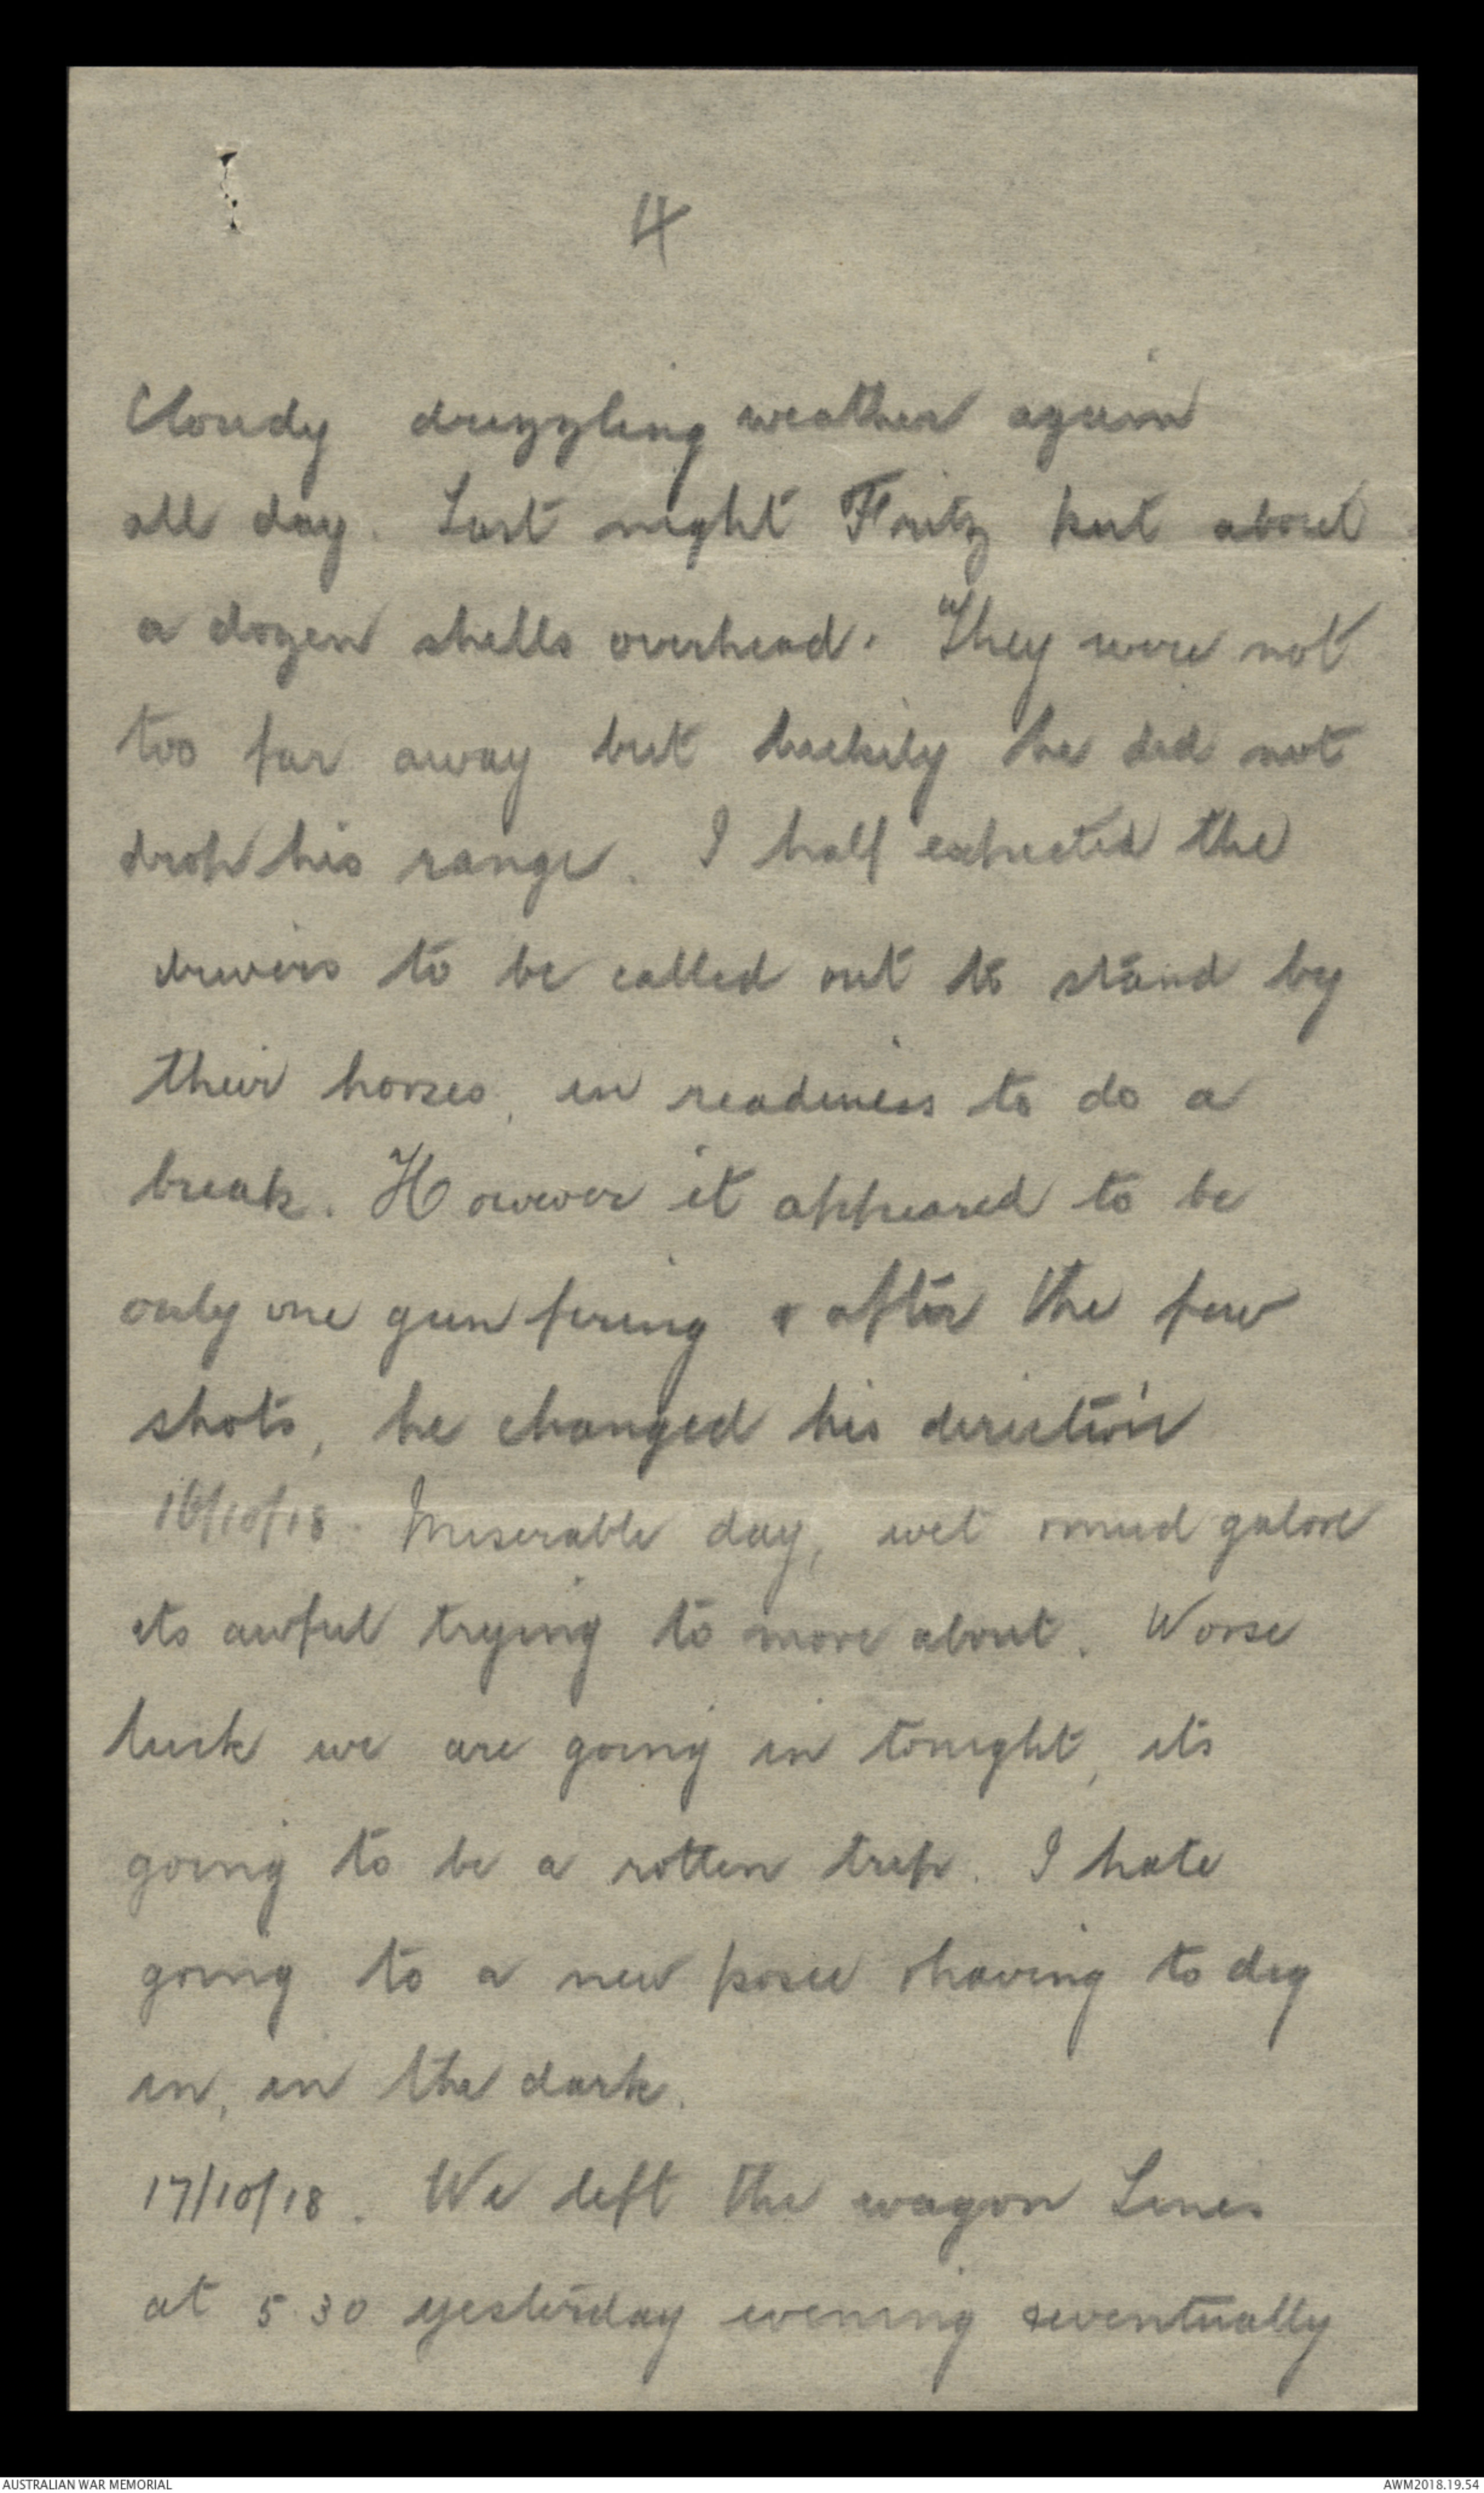 4
Cloudy drizzling weather again
all day. Last night Fritz put about
a dozen shells overhead. They were not
too far away but luckily he did not
drop his range. I half expected the
drivers to be called out to stand by
their horses, in readiness to do a
break. However it appeared to be
only one gun firing & after the few
shots, he changed his direction
16/10/18. Miserable day, wet & mud galore
its awful trying to move about. Worse
luck we are going in tonight, its
going to be a rotten trip. I hate
going to a new posie & having to dig
in, in the dark.
17/10/18. We left the wagon Lines
at 5.30 yesterday evening & eventually
AUSTRALIAN WAR MEMORIAL
AWM2018.19.54